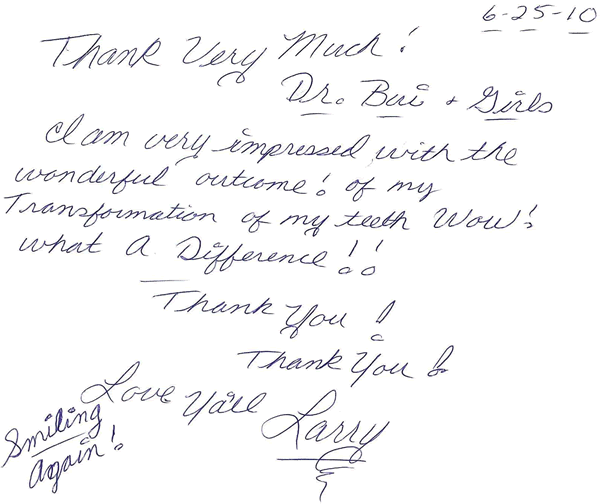 6-25-10
Thank Very Much!
Dr. Bui + Girls
I am very impressed with the
wonderful outcome! of my
Transformation of my teeth Wow!
what A Difference!!
Thank You!
Thank You!
Love Ya'll
Larry
Smiling
Again!